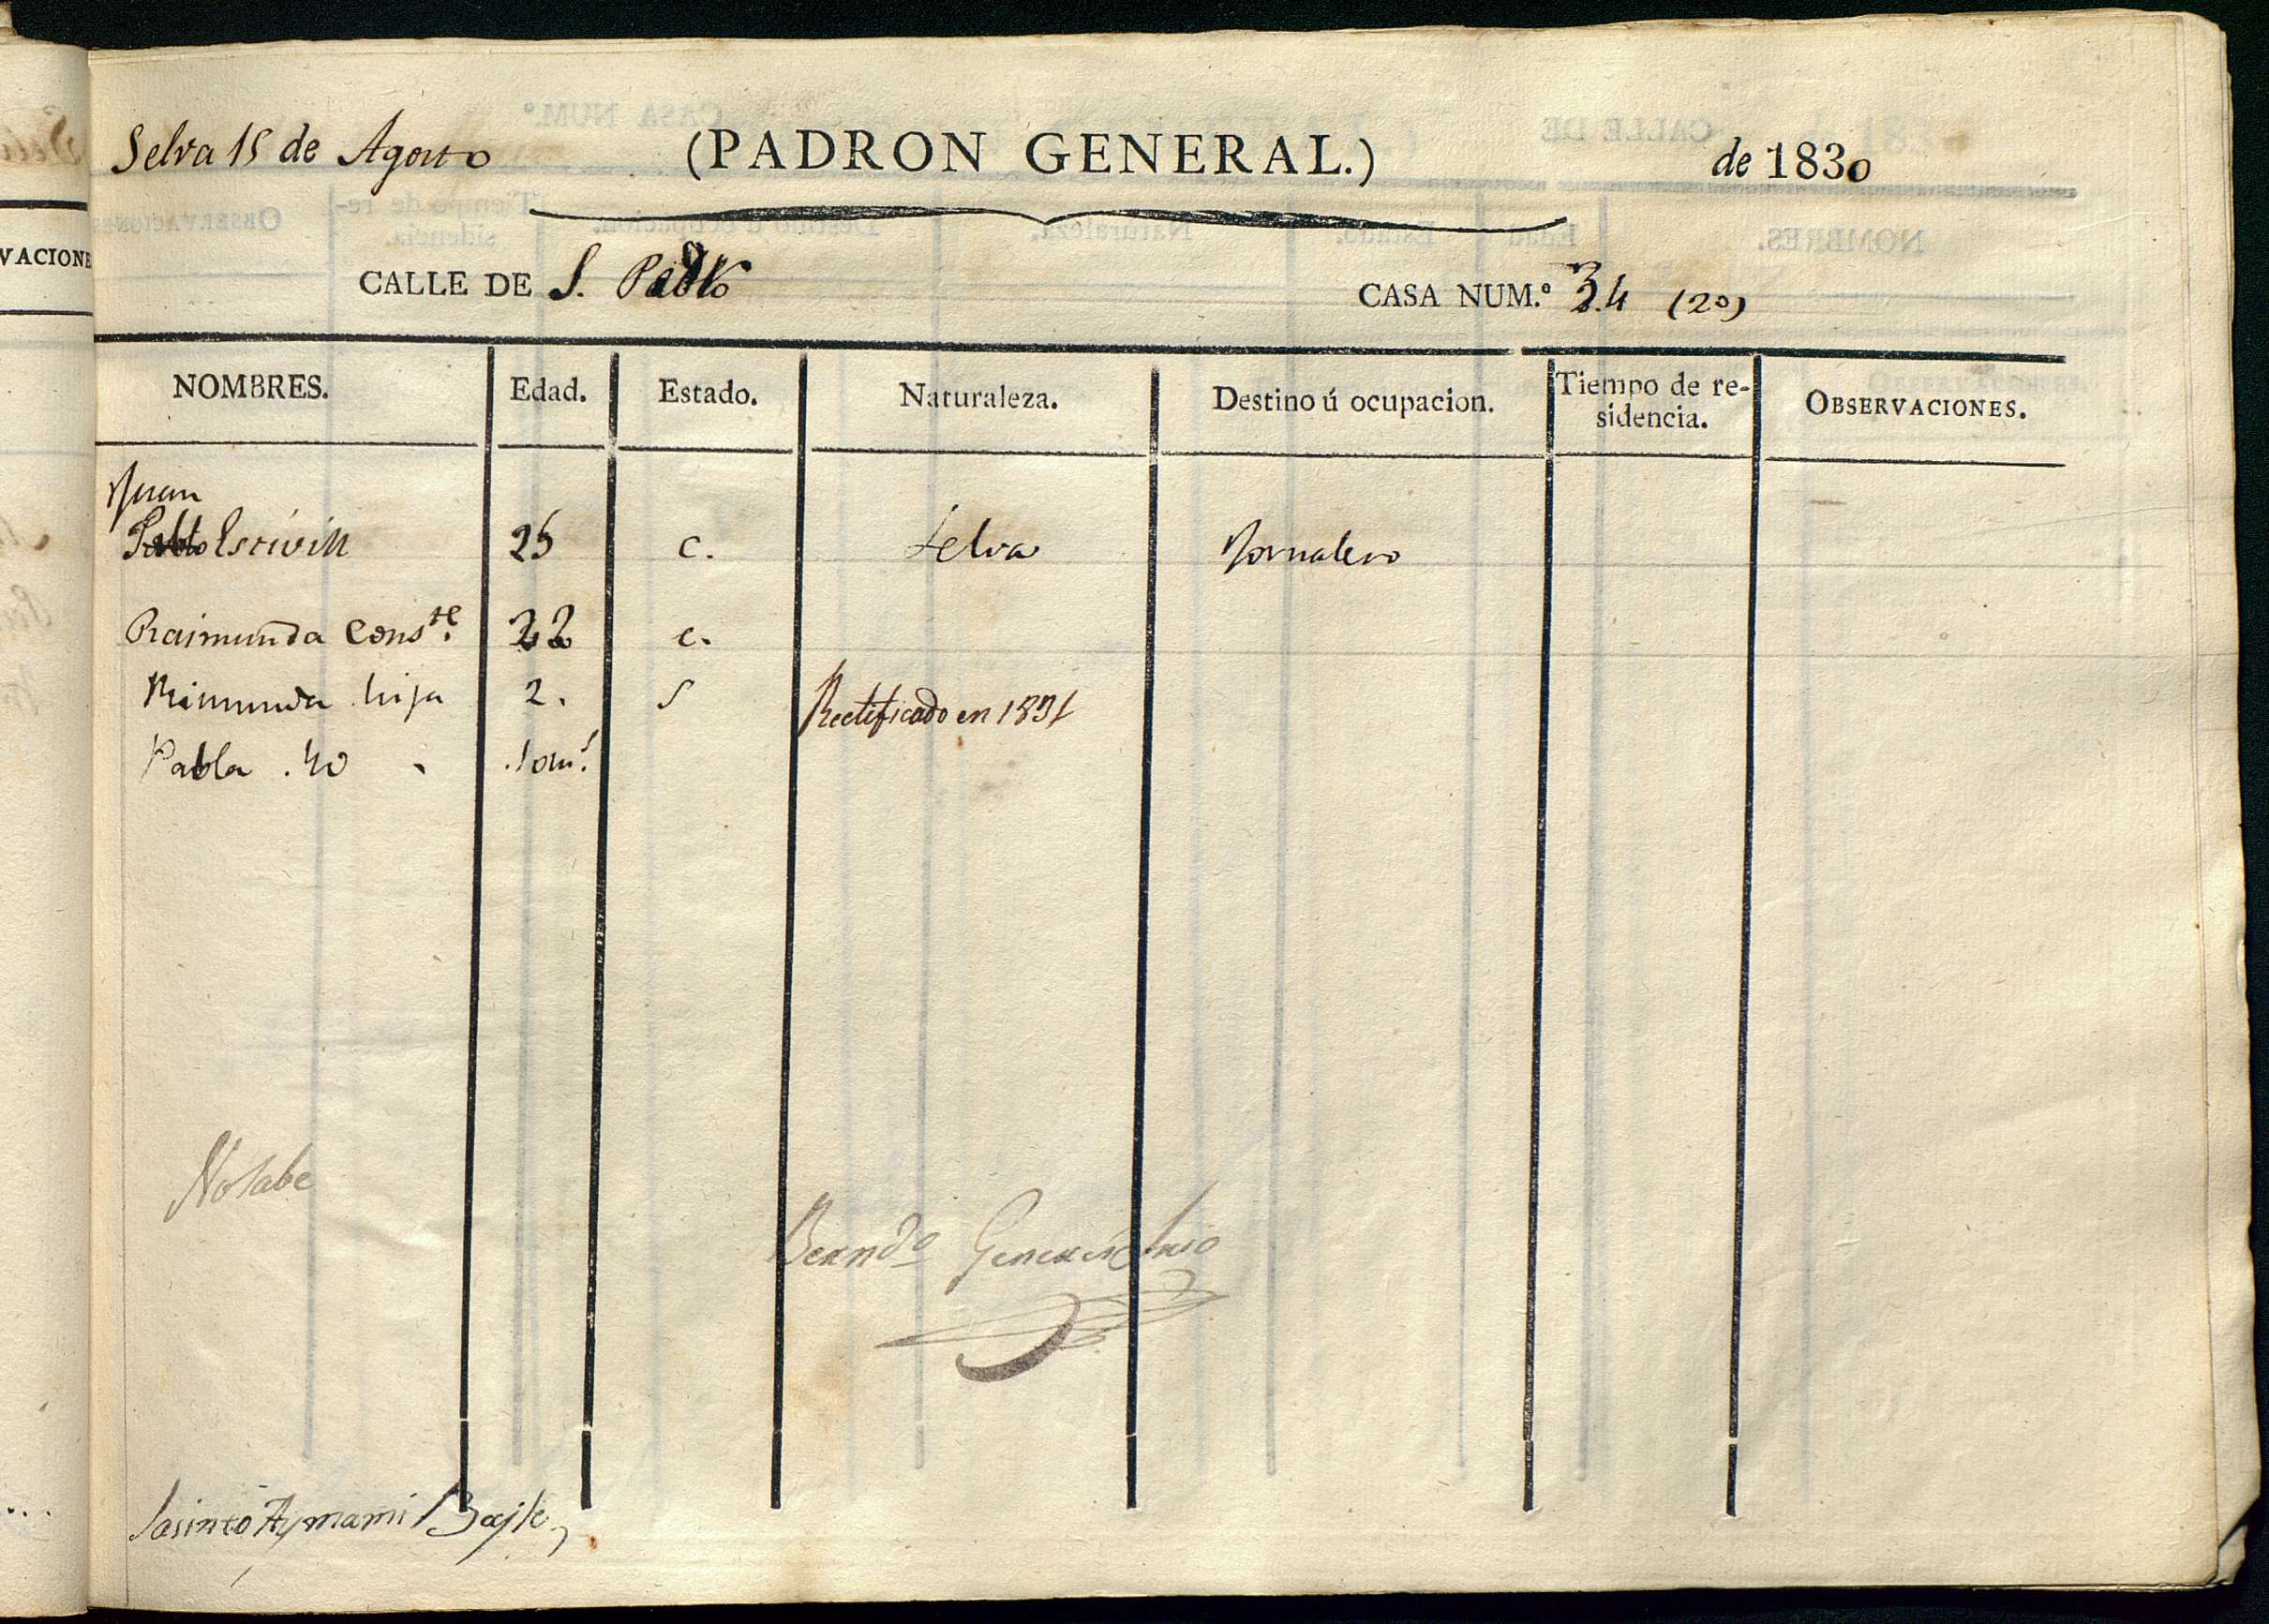 Selva 15 de Agosto (PADRON GENERAL.) de 1830
VACIONE
CALLE DE S. Pablo CASA NUM.º 34 (20)
NOMBRES. Edad. Estado. Naturaleza. Destino ú ocupacion. Tiempo de re-
sidencia. OBSERVACIONES.
Juan
Pablo Escivill 25 c. Selva Jornalero
Raimunda Conste. 22 c.
Rimunda hija 2. S Rectificado en 1831
Pabla
No sabe
Berndo
Jasinto Aymami Bajle